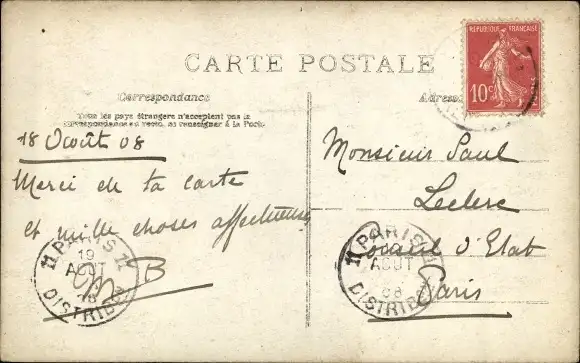 CARTE POSTALE
Correspondance
Tous les pays étrangers n'acceptent pas la
correspondance au verso, se renseigner à la Poste.
18 Août 08
Merci de ta carte
et mille choses affectueuses
B
PARIS 11
19
AOUT
08
DISTRIBON
RÉPUBLIQUE FRANÇAISE
10c
Adresse
Monsieur Paul
Leclerc
Conseil d'Etat
Paris
PARIS
11
AOUT
08
DISTRIBON